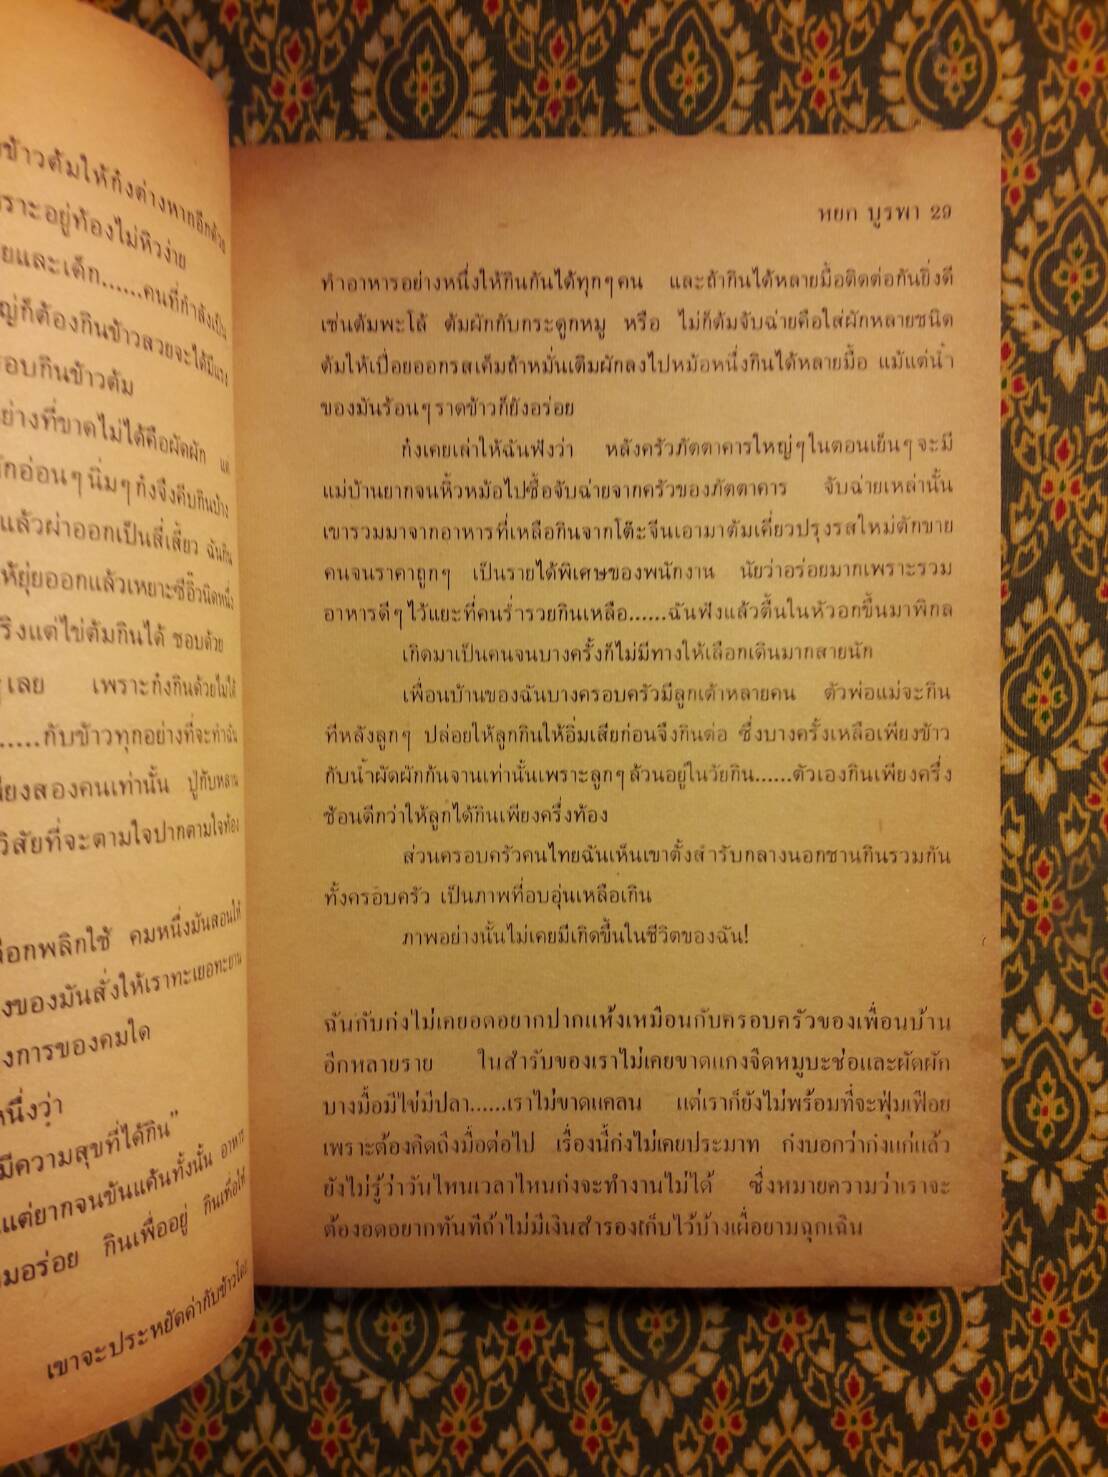 ข้าวต้มให้ก๋งต่างหากอีกด้วย
เพราะอยู่ท้องไม่หิวง่าย
และเด็ก......คนที่กำลังเป็น
ก็ต้องกินข้าวสวยจะได้มีแรง
ชอบกินข้าวต้ม
อย่างที่ขาดไม่ได้คือผัดผัก แต่
ผักอ่อนๆ นิ่มๆ ก๋งจึงคีบกินบ้าง
แล้วผ่าออกเป็นสี่เสี้ยว ฉันกิน
ให้ยุ่ยออกแล้วเหยาะซีอิ๊วนิดหนึ่ง
จริงแต่ไข่ต้มกินได้ ชอบด้วย
เลย เพราะก๋งกินด้วยไม่ได้
......กับข้าวทุกอย่างที่จะทำฉัน
เพียงสองคนเท่านั้น ปู่กับหลาน
วิสัยที่จะตามใจปากตามใจท้อง
เลือกพลิกใช้ คมหนึ่งมันสอนให้
ของมันสั่งให้เราทะเยอทะยาน
การของคมใด
หนึ่งว่า
มีความสุขที่ได้กิน"
แต่ยากจนข้นแค้นทั้งนั้น อาหาร
อร่อย กินเพื่ออยู่ กินเพื่อให้
เขาจะประหยัดค่ากับข้าวโดย
หยก บูรพา 29
ทำอาหารอย่างหนึ่งให้กินกันได้ทุกๆ คน และถ้ากินได้หลายมื้อติดต่อกันยิ่งดี
เช่นต้มพะโล้ ต้มผักกับกระดูกหมู หรือ ไม่ก็ต้มจับฉ่ายคือใส่ผักหลายชนิด
ต้มให้เปื่อยออกรสเค็มถ้าหมั่นเติมผักลงไปหม้อหนึ่งกินได้หลายมื้อ แม้แต่น้ำ
ของมันร้อนๆ ราดข้าวก็ยังอร่อย
ก๋งเคยเล่าให้ฉันฟังว่า หลังครัวภัตตาคารใหญ่ๆ ในตอนเย็นๆ จะมี
แม่บ้านยากจนหิ้วหม้อไปซื้อจับฉ่ายจากครัวของภัตตาคาร จับฉ่ายเหล่านั้น
เขารวมมาจากอาหารที่เหลือกินจากโต๊ะจีนเอามาต้มเคี่ยวปรุงรสใหม่ตักขาย
คนจนราคาถูกๆ เป็นรายได้พิเศษของพนักงาน นัยว่าอร่อยมากเพราะรวม
อาหารดีๆ ไว้แยะที่คนร่ำรวยกินเหลือ......ฉันฟังแล้วตื้นในหัวอกขึ้นมาพิกล
เกิดมาเป็นคนจนบางครั้งก็ไม่มีทางให้เลือกเดินมากสายนัก
เพื่อนบ้านของฉันบางครอบครัวมีลูกเต้าหลายคน ตัวพ่อแม่จะกิน
ทีหลังลูกๆ ปล่อยให้ลูกกินให้อิ่มเสียก่อนจึงกินต่อ ซึ่งบางครั้งเหลือเพียงข้าว
กับน้ำผัดผักก้นจานเท่านั้นเพราะลูกๆ ล้วนอยู่ในวัยกิน......ตัวเองกินเพียงครึ่ง
ช้อนดีกว่าให้ลูกได้กินเพียงครึ่งท้อง
ส่วนครอบครัวคนไทยฉันเห็นเขาตั้งสำรับกลางนอกชานกินรวมกัน
ทั้งครอบครัว เป็นภาพที่อบอุ่นเหลือเกิน
ภาพอย่างนั้นไม่เคยมีเกิดขึ้นในชีวิตของฉัน!
ฉันกับก๋งไม่เคยอดอยากปากแห้งเหมือนกับครอบครัวของเพื่อนบ้าน
อีกหลายราย ในสำรับของเราไม่เคยขาดแกงจืดหมูบะช่อและผัดผัก
บางมื้อมีไข่มีปลา......เราไม่ขาดแคลน แต่เราก็ยังไม่พร้อมที่จะฟุ่มเฟือย
เพราะต้องคิดถึงมื้อต่อไป เรื่องนี้ก๋งไม่เคยประมาท ก๋งบอกว่าก๋งแก่แล้ว
ยังไม่รู้ว่าวันไหนเวลาไหนก๋งจะทำงานไม่ได้ ซึ่งหมายความว่าเราจะ
ต้องอดอยากทันทีถ้าไม่มีเงินสำรองเก็บไว้บ้างเผื่อยามฉุกเฉิน